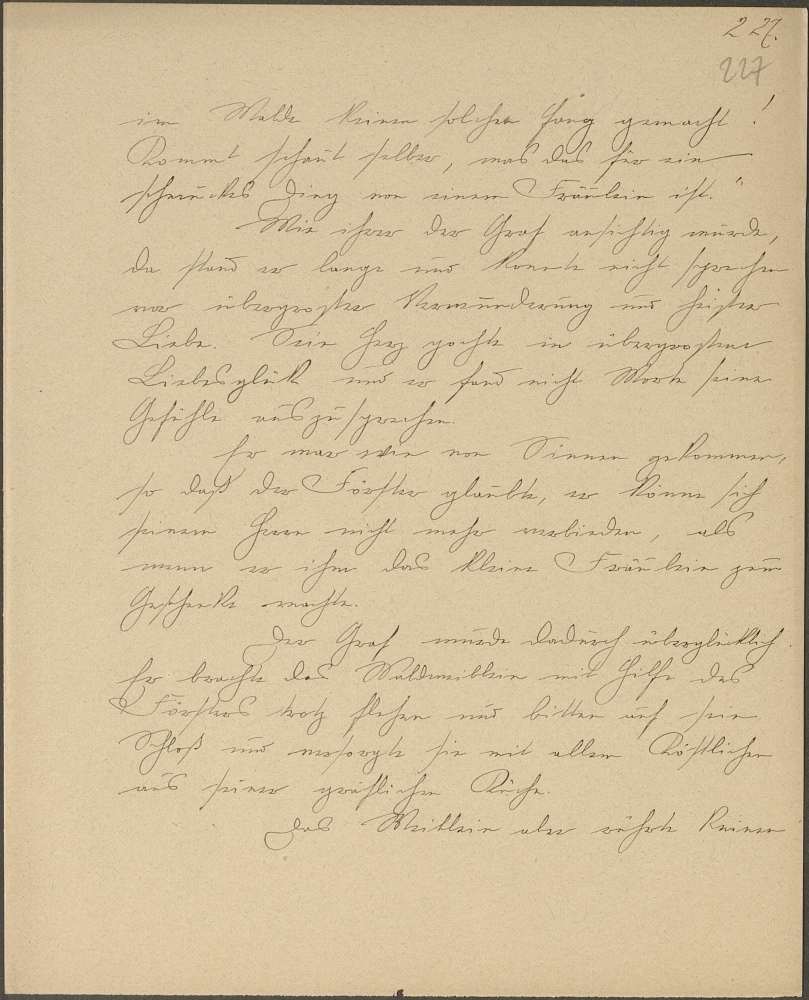 227.
227
im Walde keinen solchen Fang gemacht!
Kommt schaut selber, was das für ein
schmuckes Ding von einem Fräulein ist."
Wie ihrer der Graf ansichtig wurde,
da stand er lange und konnte nicht sprechen
vor übergroßer Verwunderung und heißer
Liebe. Sein Herz pochte in übergroßem
Liebesglück und er fand nicht Worte seine
Gefühle auszusprechen.
Er war wie von Sinnen gekommen,
so daß der Förster glaubte, er könne sich
seinem Herrn nicht mehr verbinden, als
wenn er ihm das kleine Fräulein zum
Geschenke machte.
Der Graf wurde dadurch überglücklich.
Er brachte das Waldweiblein mit Hilfe des
Försters trotz flehen und bitten auf sein
Schloß und versorgte sie mit allem Köstlichen
aus seiner gräflichen Küche.
Das Weiblein aber rührte keinen